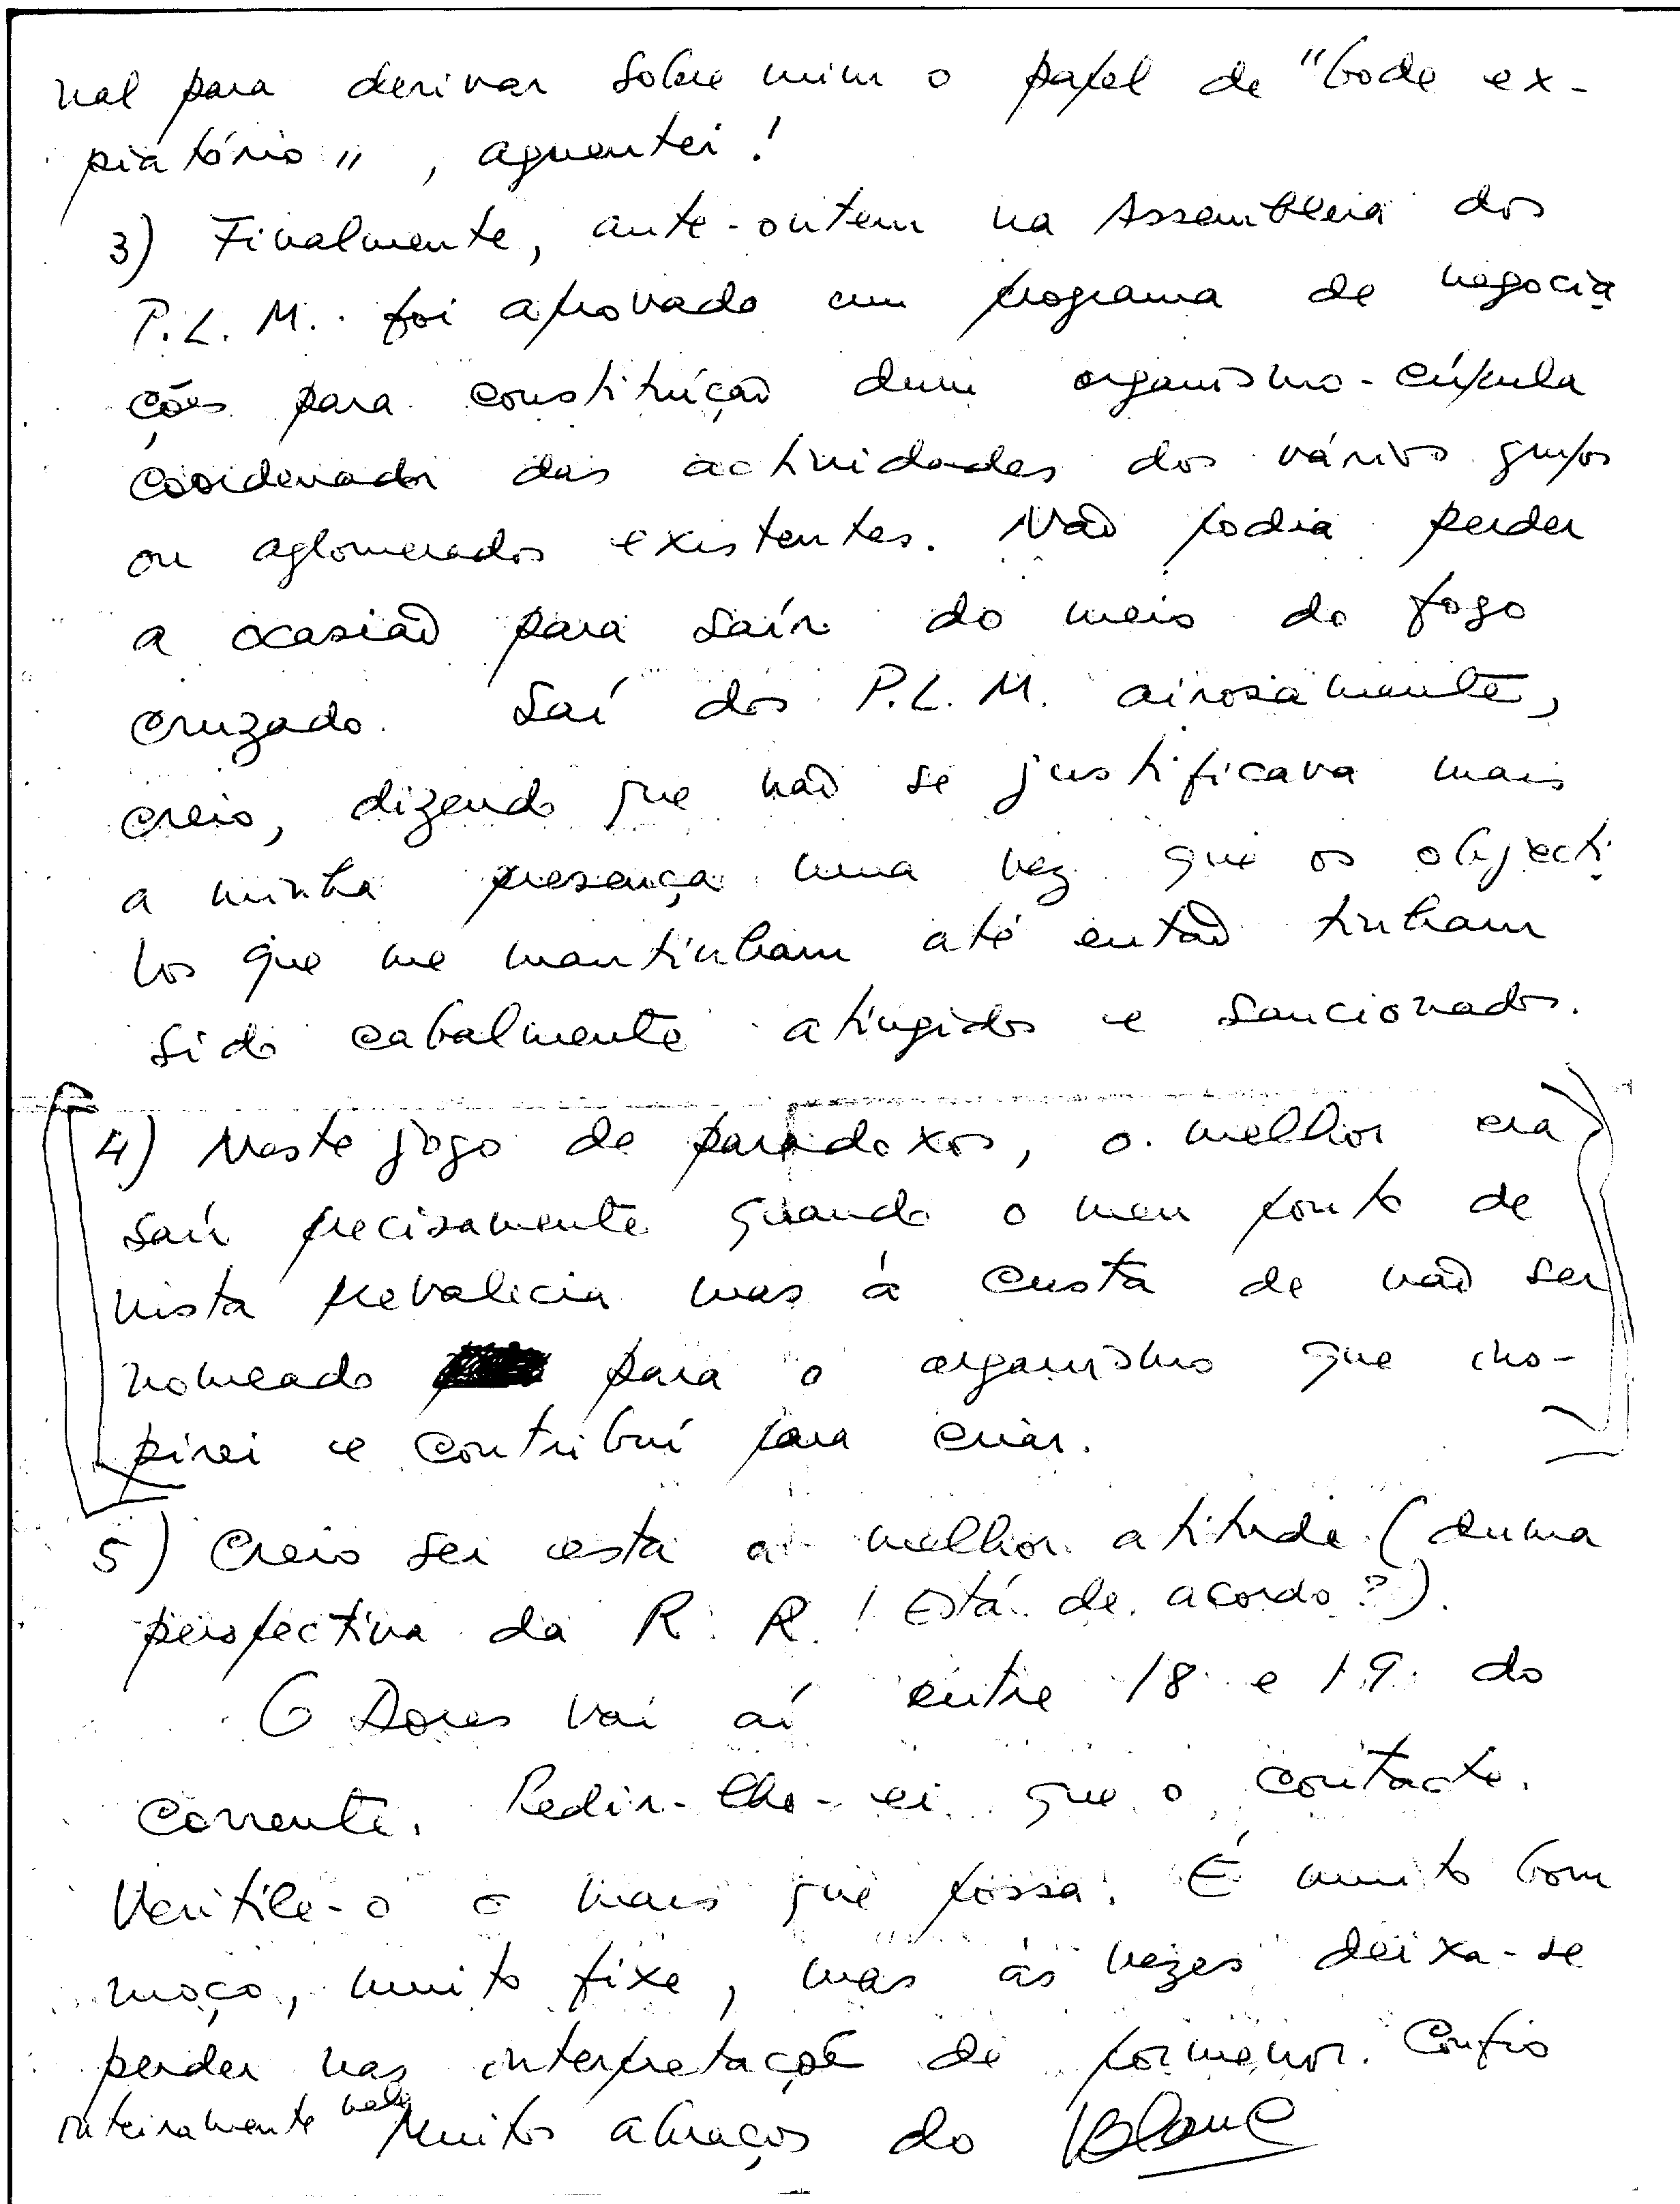 nal para derivar sobre mim o papel de "bode ex-
piatório", aguentei!
3) Finalmente, ante-ontem na Assembleia dos
P.L.M. foi aprovado um programa de negocia
ções para constituíção dum organismo-cúpula
coordenador das actividades dos vários grupos
ou aglomerados existentes. Não podia perder
a ocasião para saír do meio do fogo
cruzado. Saí dos P.L.M. airosamente,
creio, dizendo que não se justificava mais
a minha presença uma vez que os objecti
vos que me mantinham até então tinham
sido cabalmente atingidos e sancionados.
4) Neste jogo de paradoxos, o melhor era
saír precisamente quando o meu ponto de
vista prevalecia mas à custa de não ser
nomeado para o organismo que ins-
pirei e contribuí para criar.
5) Creio ser esta a melhor atitude (duma
perspectiva da R. R.! Está de acordo?).
O Dores vai aí entre 18 e 19 do
corrente. Pedir-lho-ei que o contacte.
Ventile-o o mais que possa. É muito bom
moço, muito fixe, mas às vezes deixa-se
perder nas interpretações de pormenor. Confio
inteiramente nele. Muitos abraços do